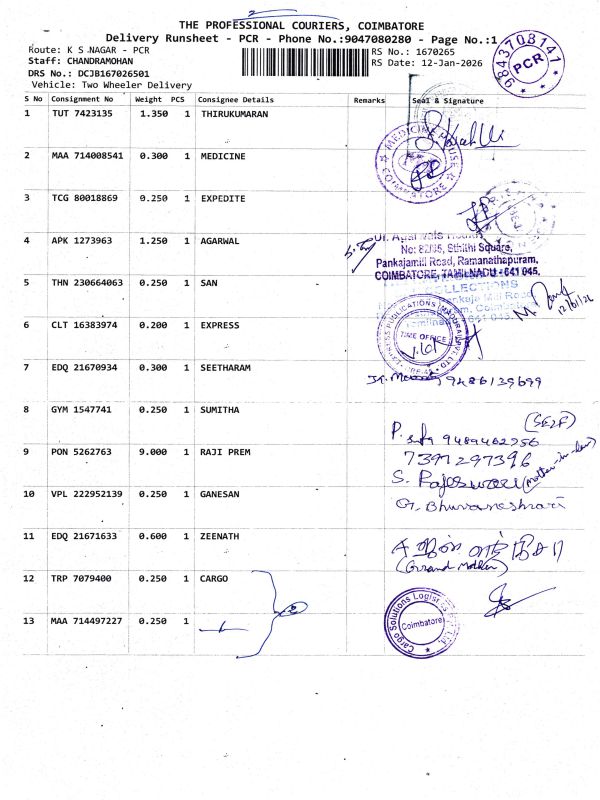 2
THE PROFESSIONAL COURIERS, COIMBATORE
Delivery Runsheet - PCR - Phone No.:9047080280 - Page No.:1
Route: K S NAGAR - PCR
RS No.: 1670265
Staff: CHANDRAMOHAN
RS Date: 12-Jan-2026
DRS No.: DCJB167026501
Vehicle: Two Wheeler Delivery
9843708141
PCR
S No Consignment No Weight PCS Consignee Details Remarks Seal & Signature
1 TUT 7423135 1.350 1 THIRUKUMARAN
2 MAA 714008541 0.300 1 MEDICINE
MEDICINE HOUSE
COIMBATORE
3 TCG 80018869 0.250 1 EXPEDITE
4 APK 1273963 1.250 1 AGARWAL
No: 82/65, Sthithi Square,
Pankajamill Road, Ramanathapuram,
COIMBATORE, TAMILNADU - 641 045.
5 THN 230664063 0.250 1 SAN
COLLECTIONS
12/01/26
6 CLT 16383974 0.200 1 EXPRESS
EXPRESS PUBLICATIONS (MADURAI) PVT LTD
TIME OFFICE
7 EDQ 21670934 0.300 1 SEETHARAM
9486139699
8 GYM 1547741 0.250 1 SUMITHA
(SELF)
9489462256
9 PON 5262763 9.000 1 RAJI PREM
7397297396
S. Rajeswari (Mother-in-law)
10 VPL 222952139 0.250 1 GANESAN
G. Bhuvaneshwari
11 EDQ 21671633 0.600 1 ZEENATH
(Grand Mother)
12 TRP 7079400 0.250 1 CARGO
2
13 MAA 714497227 0.250 1
Cargo Solutions Logistics Pvt. Ltd.
Coimbatore